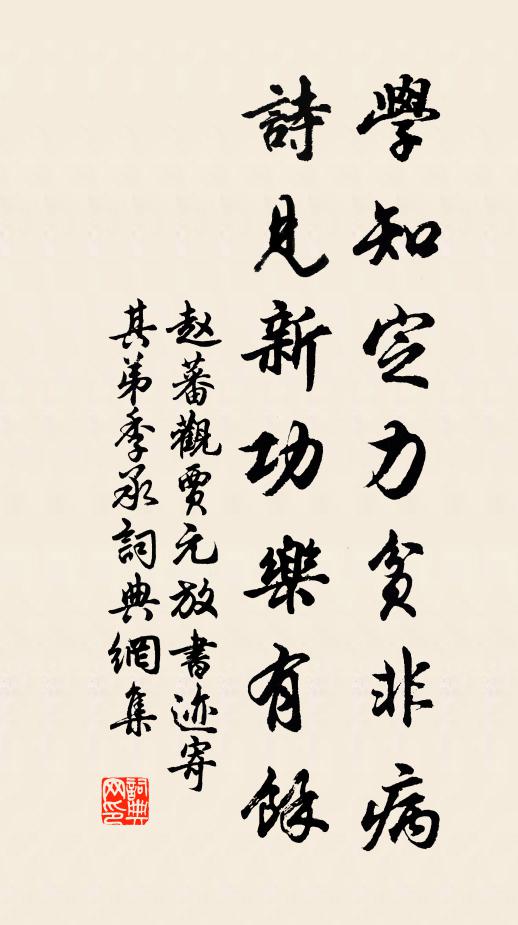 學知定力貧非病
詩見新功樂有餘
赵蕃觀賈元放書迹寄
其弟季承詞典網集
詞典网印